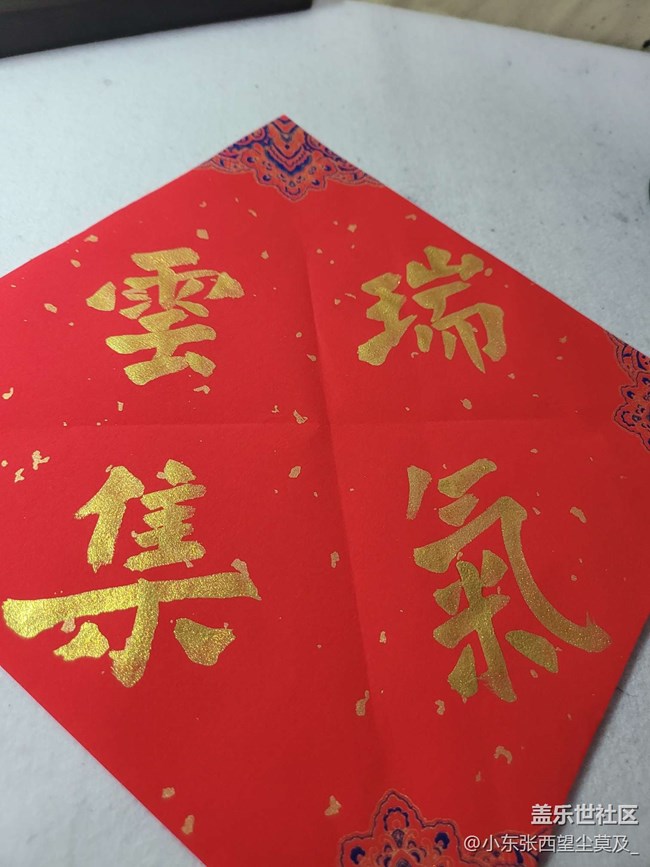 瑞氣
雲集
盖乐世社区
@小东张西望尘莫及_